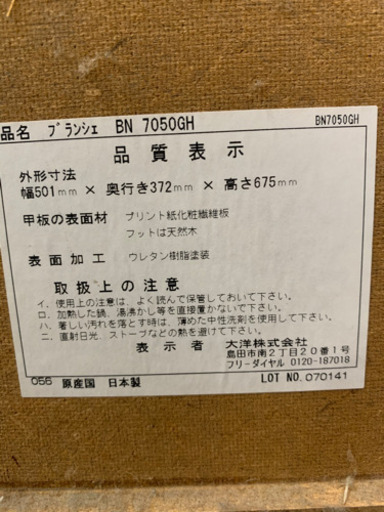 品名 ブランシェ BN 7050GH BN7050GH
品質表示
外形寸法
幅501mm × 奥行き372mm × 高さ675mm
甲板の表面材 プリント紙化粧繊維板
フットは天然木
表面加工 ウレタン樹脂塗装
取扱上の注意
イ．使用上の注意は、よく読んで保管しておいて下さい。
ロ．加熱した鍋、湯沸かし等を直接置かないで下さい。
ハ．著しい汚れを落とす時は、薄めた中性洗剤を使用して下さい。
ニ．直射日光、ストーブなどの熱を避けて下さい。
表示者 大洋株式会社
島田市南2丁目20番1号
フリーダイヤル 0120-187018
056 原産国 日本製 LOT NO. 070141